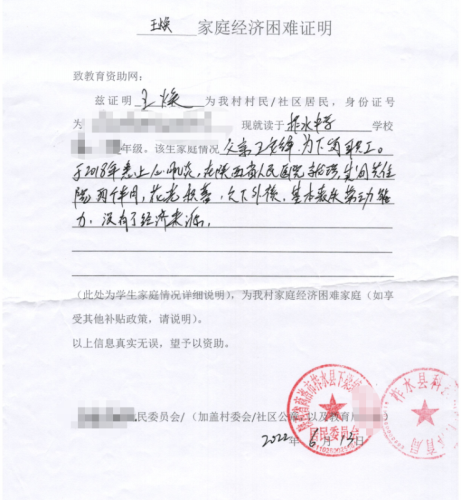 王焕 家庭经济困难证明
致教育资助网：
兹证明 王焕 为我村村民/社区居民，身份证号
为 现就读于 柞水中学 学校
年级。该生家庭情况 父亲 为下岗职工。
于2018年患上心肌炎，在陕西省人民医院 先后共住
院两个半月，花光积蓄，欠下外债，基本丧失劳动能
力，没有了经济来源。
（此处为学生家庭情况详细说明），为我村家庭经济困难家庭（如享
受其他补贴政策，请说明）。
以上信息真实无误，望予以资助。
民委员会/（加盖村委会/社区公 以及教育局
2022年6月13日
商洛市柞水县下
居民委员会
柞水县科 教育局